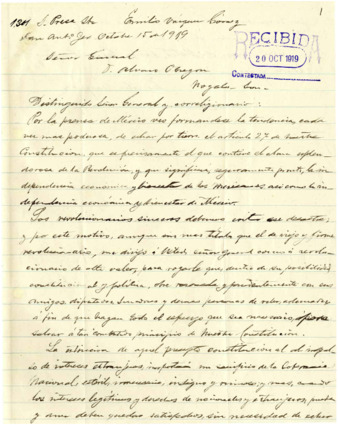 1
1321 S. Presa Str. Emilio Vazquez Gomez
San Antº Tex Octubre 15 de 1919
RECIBIDA
20 OCT 1919
CONTESTADA
Señor General
D. Alvaro Obregon
Nogales, Son.
Distinguido Señor General y correligionario:
Por la prensa de México veo formandose la tendencia, cada
vez mas poderosa, de echar por tierra el articulo 27 de nuestra
Constitucion, que es precisamente el que contiene el alma
de la Revolucion, y que significa, seguramente, la in-
dependencia economica y bienestar de los Mexicanos asi como la in-
dependencia economica y bienestar de México.
Los revolucionarios sinceros debemos
y por este motivo, aunque sin mas titulo que el de viejo y firme
revolucionario, me dirijo á Usted, señor General como á revolu-
cionario de alto valer, para rogarle que, dentro de su posibilidad
constitucional y politica, obre con sus
amigos diputados, Senadores y demas personas de valer
á fin de que hagan todo el esfuerzo que sea necesario para
salvar á tan principio de Nuestra Constitucion.
La de aquel precepto constitucional al
de intereses extranjeros, un sacrificio de la Soberania
Nacional esteril, innecesario, indigno y mas, cuando
los intereses legitimos y derechos de nacionales y extranjeros, pueden
y aun deben quedar satisfechos, sin necesidad de echar